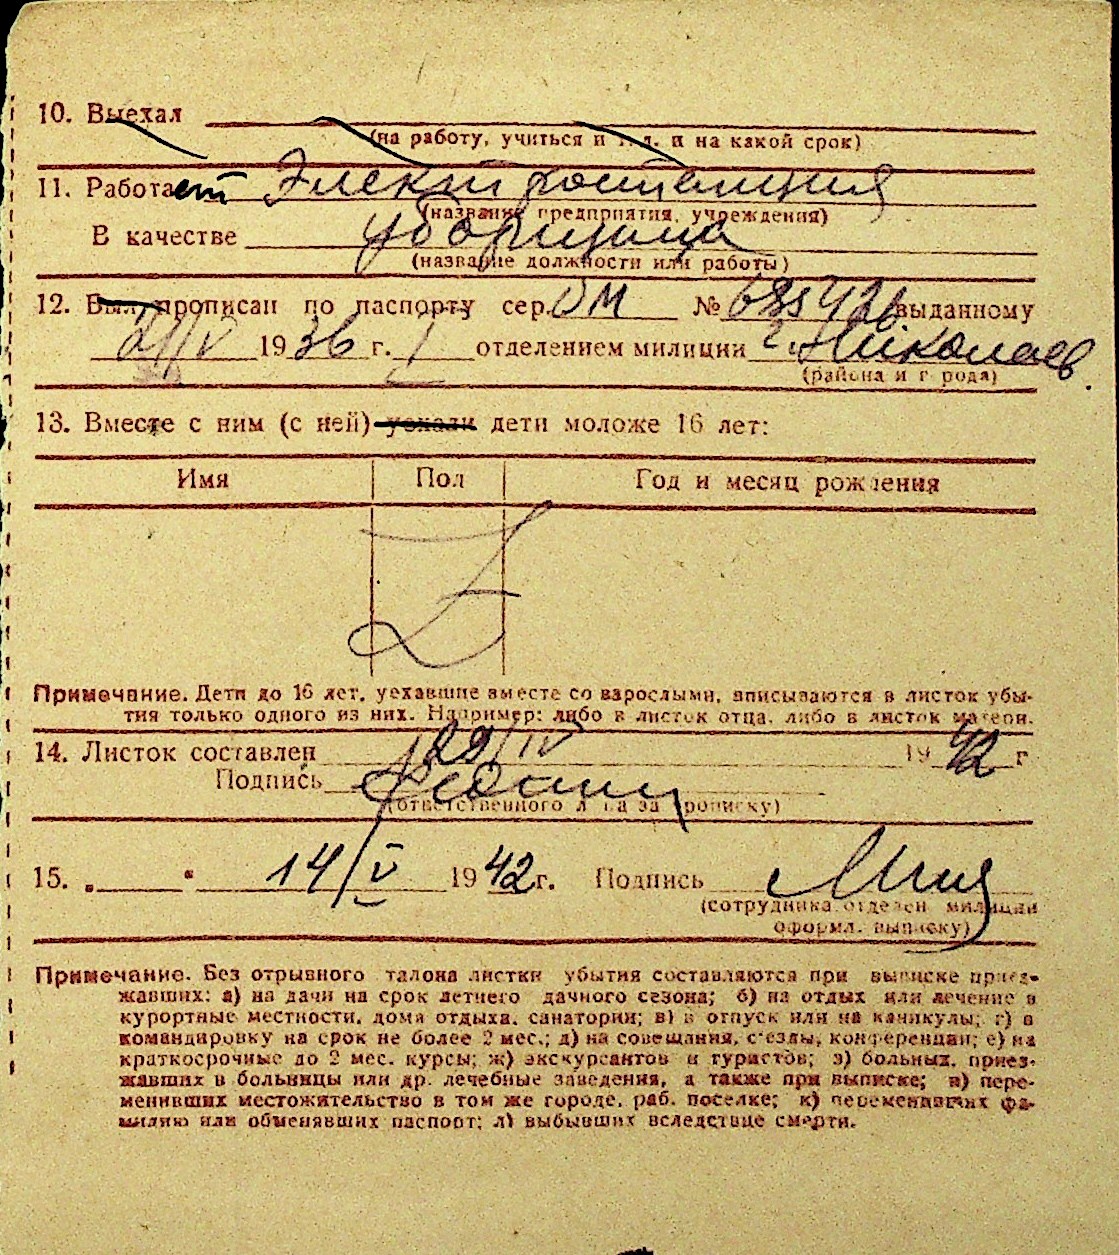 10. Выехал
(на работу, учиться и т.д. и на какой срок)
11. Работает Электростанция
(название предприятия, учреждения)
В качестве уборщица
(название должности или работы)
12. Был прописан по паспорту сер. ОМ № выданному
21/IV 1936 г. I отделением милиции г. Николаев.
(района и города)
13. Вместе с ним (с ней) уехали дети моложе 16 лет:
Имя Пол Год и месяц рождения
Примечание. Дети до 16 лет, уехавшие вместе со взрослыми, вписываются в листок убы-
тия только одного из них. Например: либо в листок отца, либо в листок матери.
14. Листок составлен 29/IV 1942 г
Подпись
(ответственного лица за прописку)
15. „ “ 14/V 1942 г. Подпись
(сотрудника отделен. милиции
оформл. выписку)
Примечание. Без отрывного талона листки убытия составляются при выписке приез-
жавших: а) на дачи на срок летнего дачного сезона; б) на отдых или лечение в
курортные местности, дома отдыха, санатории; в) в отпуск или на каникулы; г) в
командировку на срок не более 2 мес.; д) на совещания, с'езды, конференции; е) на
краткосрочные до 2 мес. курсы; ж) экскурсантов и туристов; з) больных, приез-
жавших в больницы или др. лечебные заведения, а также при выписке; и) пере-
менивших местожительство в том же городе, раб. поселке; к) переменивших фа-
милию или обменявших паспорт; л) выбывших вследствие смерти.